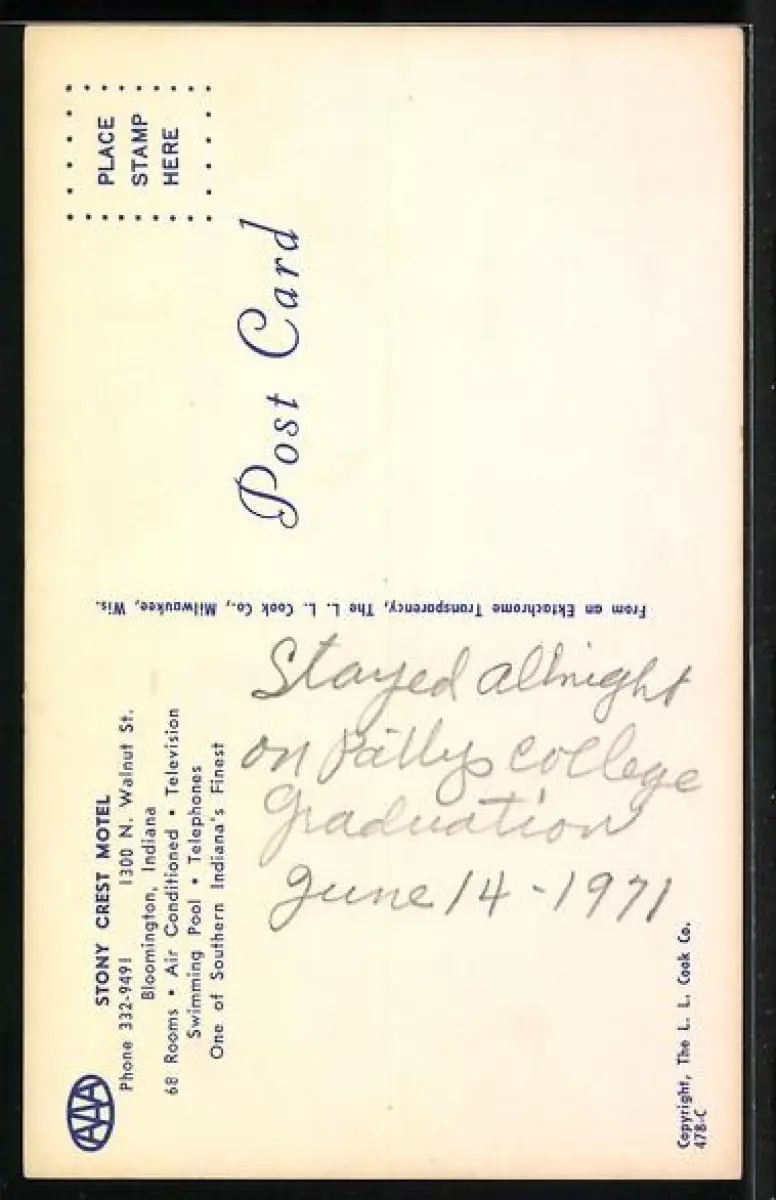 AAA
STONY CREST MOTEL
Phone 332-9491 1300 N. Walnut St.
Bloomington, Indiana
68 Rooms • Air Conditioned • Television
Swimming Pool • Telephones
One of Southern Indiana's Finest
PLACE
STAMP
HERE
Post Card
From an Ektachrome Transparency, The L. L. Cook Co., Milwaukee, Wis.
Stayed allnight
on Pattys college
Graduation
June 14-1971
Copyright, The L. L. Cook Co.
478-C